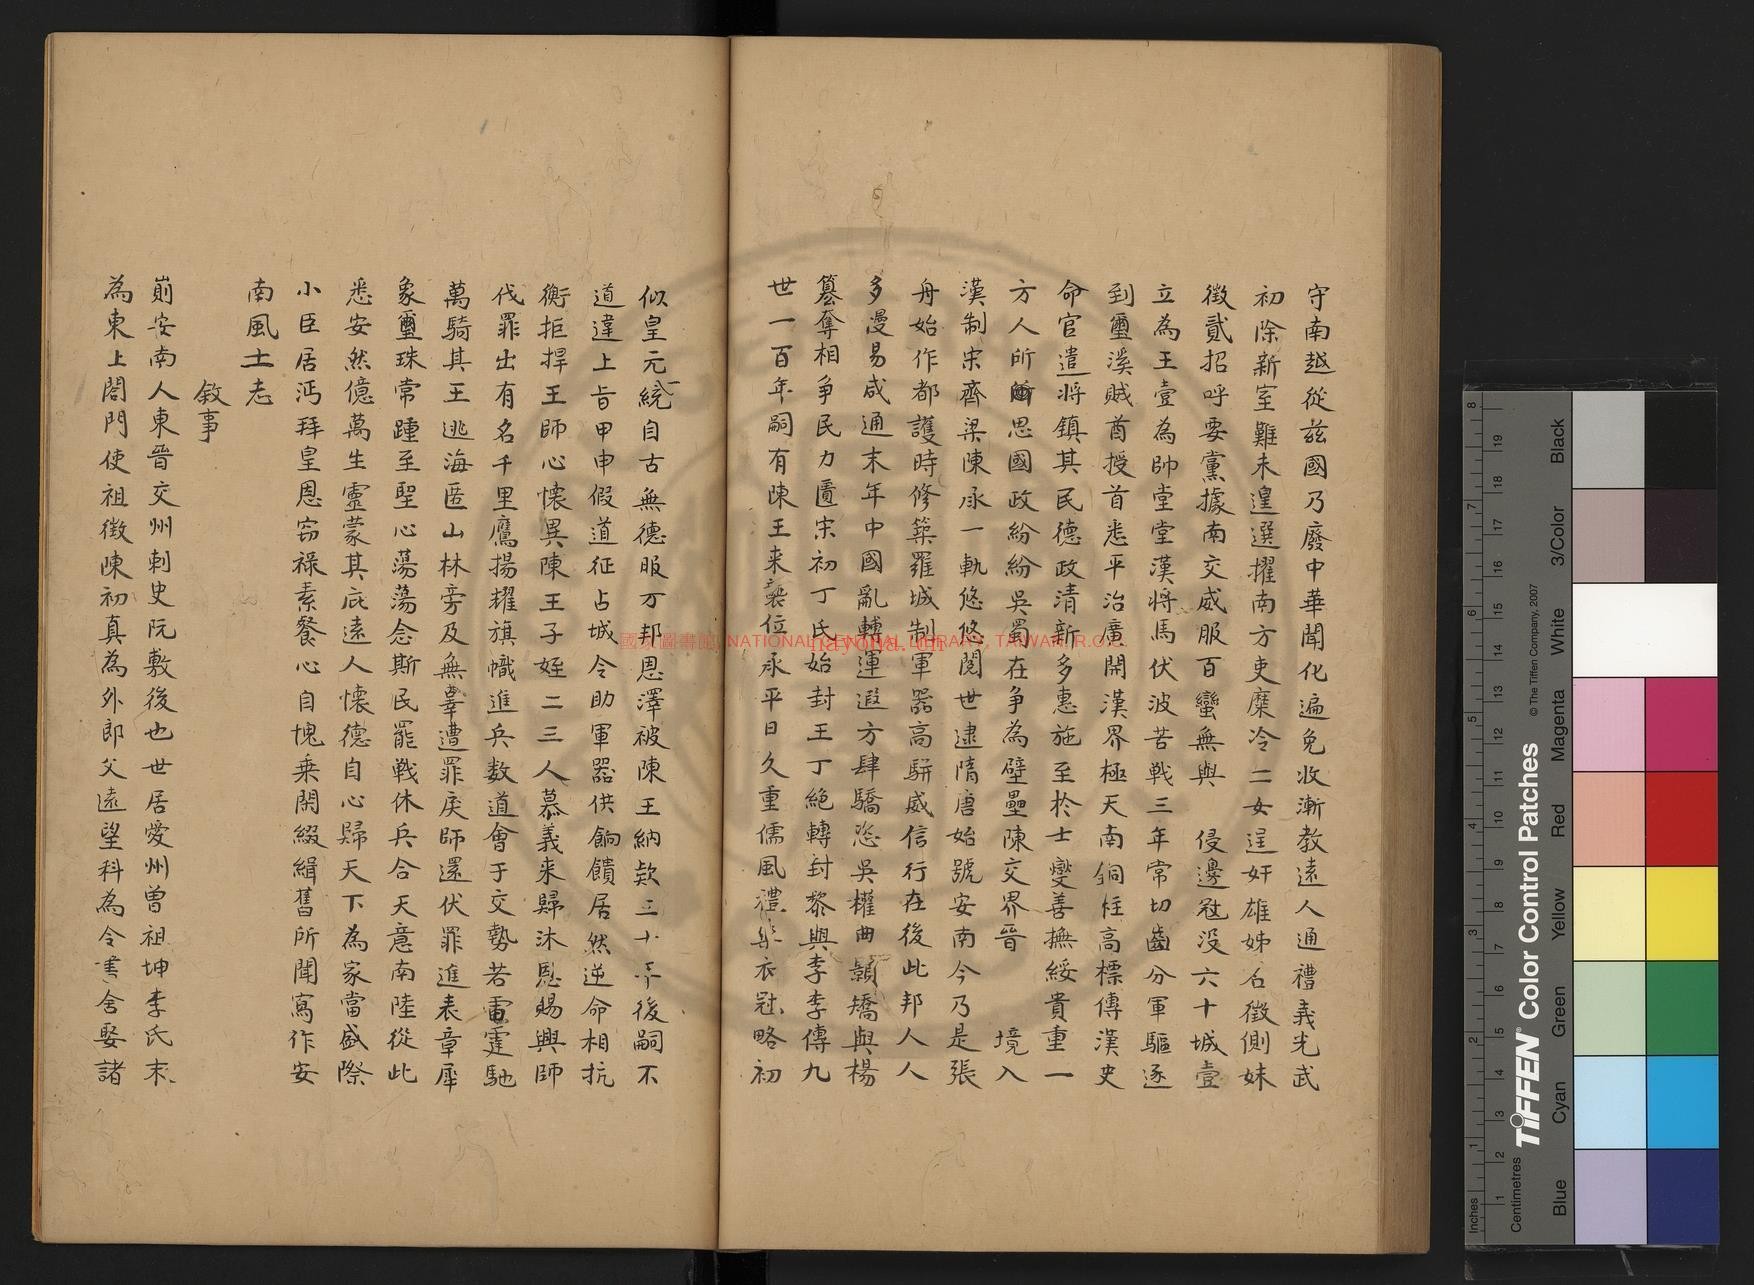 守南越從兹國乃廢中華聞化遍免收漸教遠人通禮義光武
初除新室難未遑選擢南方吏糜冷二女逞奸雄姊名徵側妹
徵貳招呼要黨據南交威服百蠻無與 侵邊冦没六十城壹
立為王壹為帥堂堂漢將馬伏波苦戰三年常切齒分軍驅逐
到壐溪賊酋授首悉平治廣開漢界極天南銅柱高標傳漢史
命官遣將鎮其民德政清新多惠施至於士燮善撫綏貴重一
方人所 思國政紛紛吳蜀在争為壁壘陳交界晉 境入
漢制宋齊梁陳承一軌悠悠閱世逮隋唐始號安南今乃是張
舟始作都護時修築羅城制軍器高駢威信行在後此邦人人
多漫易咸通末年中國亂轉運遐方肆驕恣吳權曲顥矯與楊
簒奪相争民力匱宋初丁氏始封王丁絶轉封黎與李李傳九
世一百年嗣有陳王来襲位承平日久重儒風禮樂衣冠略初
似皇元統一自古無德服万邦恩澤被陳王納欵三十年後嗣不
道違上旨甲申假道征占城令助軍器供餉饋居然逆命相抗
衡拒捍王師心懷異陳王子姪二三人慕義来歸沐恩賜興師
伐罪出有名千里鷹揚耀旗幟進兵数道會于交勢若雷霆馳
萬騎其王逃海匿山林旁及無辜遭罪戾師還伏罪進表章犀
象璽珠常踵至聖心蕩蕩念斯民罷戰休兵合天意南陸從此
悉安然億萬生靈蒙其庇遠人懷德自心歸天下為家當盛際
小臣居沔拜皇恩窃禄素餐心自愧乗閑綴緝舊所聞寫作安
南風土志
敘事
前安南人東晉交州刺史阮敷後也世居愛州曽祖坤李氏末
為東上閤門使祖徵陳初真為外郎父遠望科為令書舍娶諸
國家圖書館, NATIONAL CENTRAL LIBRARY, TAIWAN, R.O.C.
Inches
Centimetres
TIFFEN® Color Control Patches
© The Tiffen Company, 2007
Blue
Cyan
Green
Yellow
Red
Magenta
White
3/Color
Black